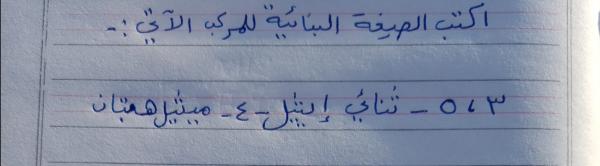 اكتب الصيغة البنائية للمركب الآتي :-
٥،٣ - ثنائي إيثيل - ٤ - ميثيل هبتان